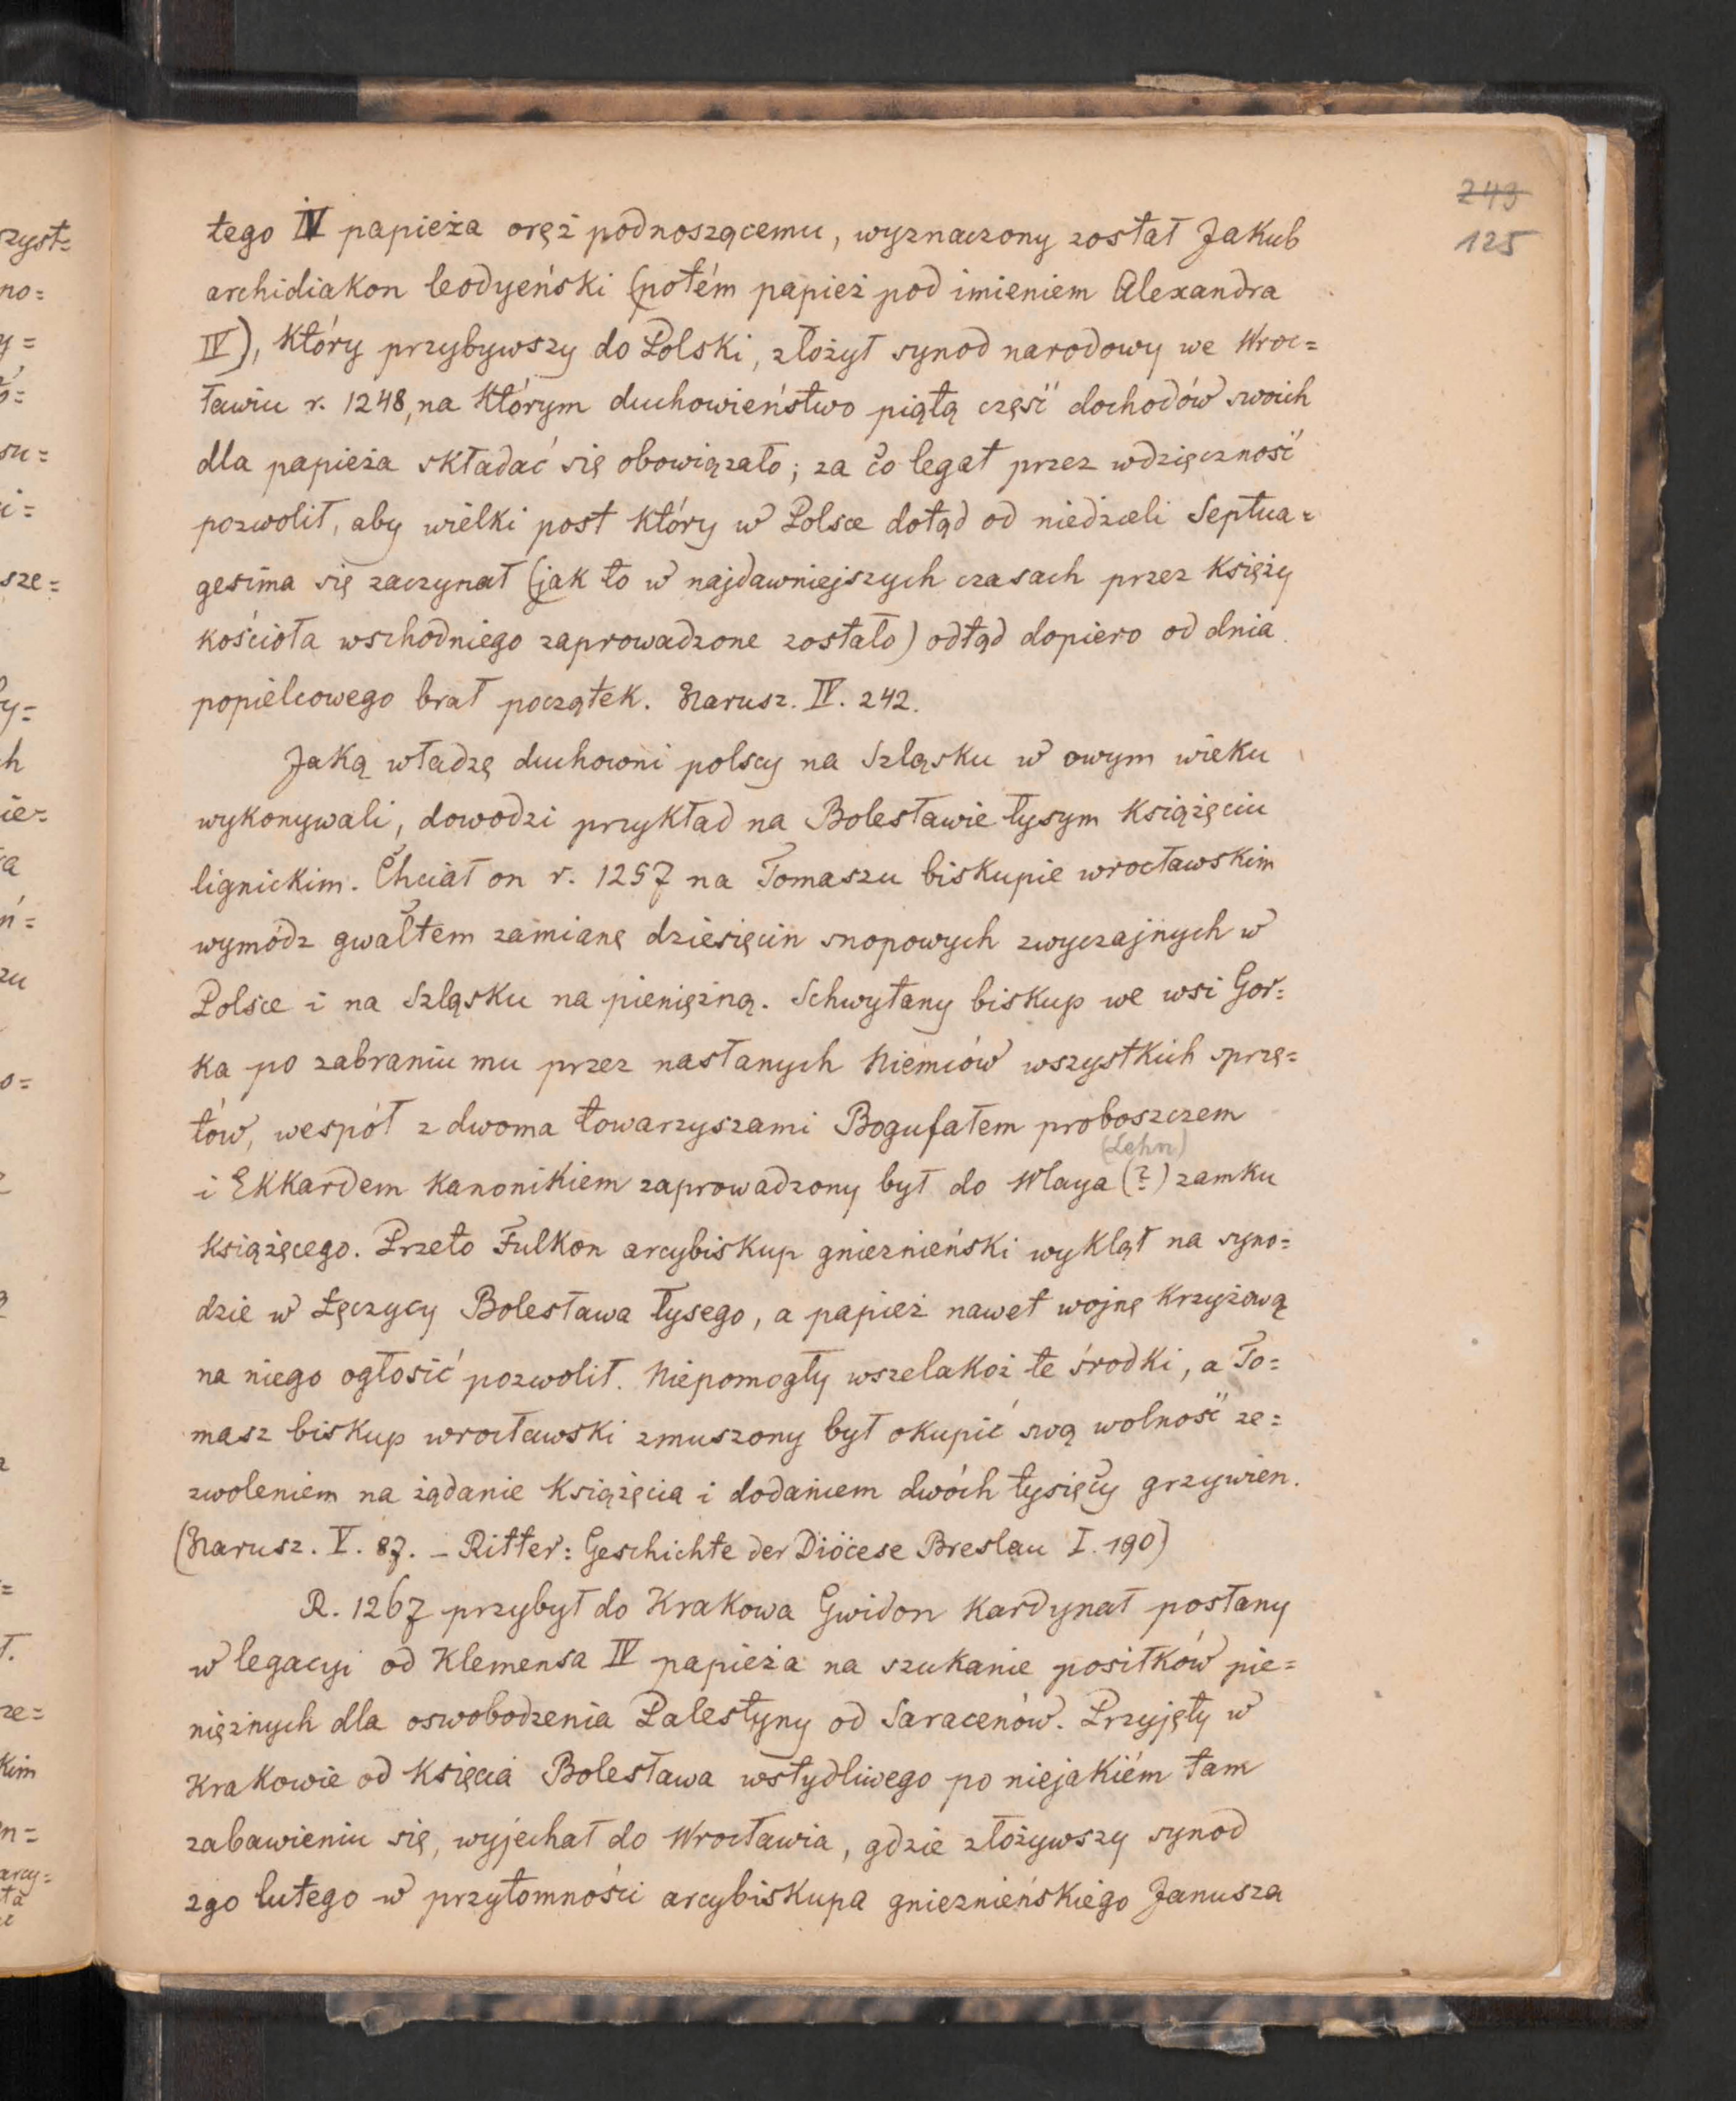 249
125
tego IV papieża oręż podnoszącemu, wyznaczony został Jakub
archidiakon leodyeński (potém papież pod imieniem Alexandra
IV), który przybywszy do Polski, złożył synod narodowy we Wroc=
ławiu r. 1248, na którym duchowieństwo piątą część dochodów swoich
dla papieża składać się obowiązało; za co legat przez wdzięczność
pozwolił, aby wielki post który w Polsce dotąd od niedzieli Septua=
gesima się zaczynał (jak to w najdawniejszych czasach przez księży
kościoła wschodniego zaprowadzone zostało) odtąd dopiero od dnia
popielcowego brał początek. Narusz. IV. 242.
Jaką władzę duchowni polscy na Szląsku w owym wieku
wykonywali, dowodzi przykład na Bolesławie łysym książęciu
lignickim. Chciał on r. 1257 na Tomaszu biskupie wrocławskim
wymódz gwałtem zamianę dziesięcin snopowych zwyczajnych w
Polsce i na Szląsku na pieniężną. Schwytany biskup we wsi Gor=
ka po zabraniu mu przez nasłanych Niemców wszystkich sprzę=
tów, wespół z dwoma towarzyszami Bogufałem proboszczem
(Lehn)
i Ekkardem kanonikiem zaprowadzony był do Wlaya (?) zamku
książęcego. Przeto Fulkon arcybiskup gnieznieński wyklął na syno=
dzie w Łęczycy Bolesława łysego, a papież nawet wojnę krzyżową
na niego ogłosić pozwolił. Niepomogły wszelakoż te środki, a To=
masz biskup wrocławski zmuszony był okupić swą wolność ze=
zwoleniem na żądanie książęcia i dodaniem dwóch tysięcy grzywien.
(Narusz. V. 87. – Ritter: Geschichte der Diöcese Breslau I. 190)
R. 1267 przybył do Krakowa Gwidon kardynał posłany
w legacyi od Klemensa IV papieża na szukanie posiłków pie=
niężnych dla oswobodzenia Palestyny od Saracenów. Przyjęty w
Krakowie od księcia Bolesława wstydliwego po niejakiém tam
zabawieniu się, wyjechał do Wrocławia, gdzie złożywszy synod
2go lutego w przytomności arcybiskupa gnieznieńskiego Janusza